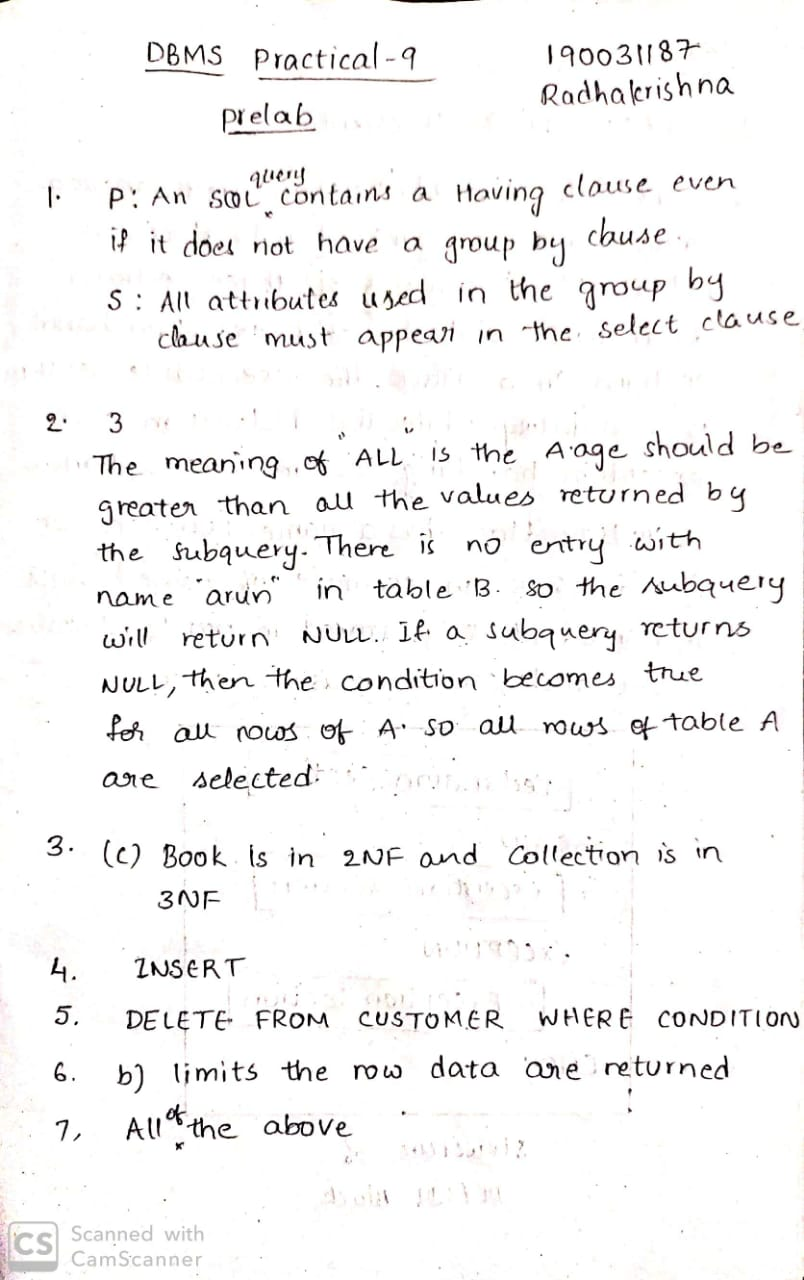 DBMS Practical-9
190031187
Radhakrishna
prelab
1. P: An SQL query contains a Having clause even
if it does not have a group by clause.
S: All attributes used in the group by
clause must appear in the select clause
2. 3
The meaning of "ALL" is the A.age should be
greater than all the values returned by
the subquery. There is no entry with
name "arun" in table B. so the subquery
will return NULL. If a subquery returns
NULL, then the condition becomes true
for all rows of A. so all rows of table A
are selected.
3. (c) Book is in 2NF and Collection is in
3NF
4. INSERT
5. DELETE FROM CUSTOMER WHERE CONDITION
6. b) limits the row data are returned
7, All of the above
CS Scanned with
CamScanner